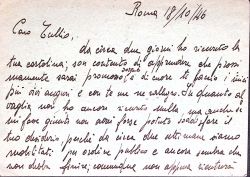 Roma 18/10/46
Caro Tullio,
da circa due giorni ho ricevuto la
tua cartolina; son contento di apprendere che prossi
mamente sarai promosso, e di cuore ti faccio i miei
più vivi auguri e con te me ne rallegro. In quanto al
vaglia non ho ancora ricevuto nulla, ma anche se
mi fosse giunto non avrei forse potuto soddisfare il
tuo desiderio, perchè da circa due settimane siamo
mobilitati per ordine pubblico e ancora sembra che
non debba finire; comunque non appena